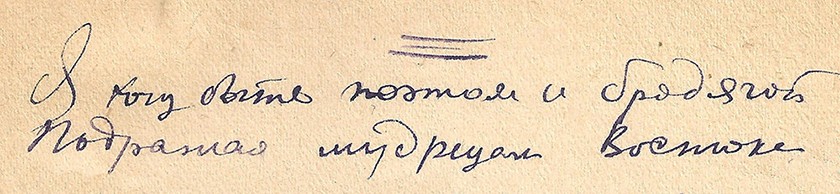 Я хочу быть поэтом и бродягой
Подражая мудрецам Востока